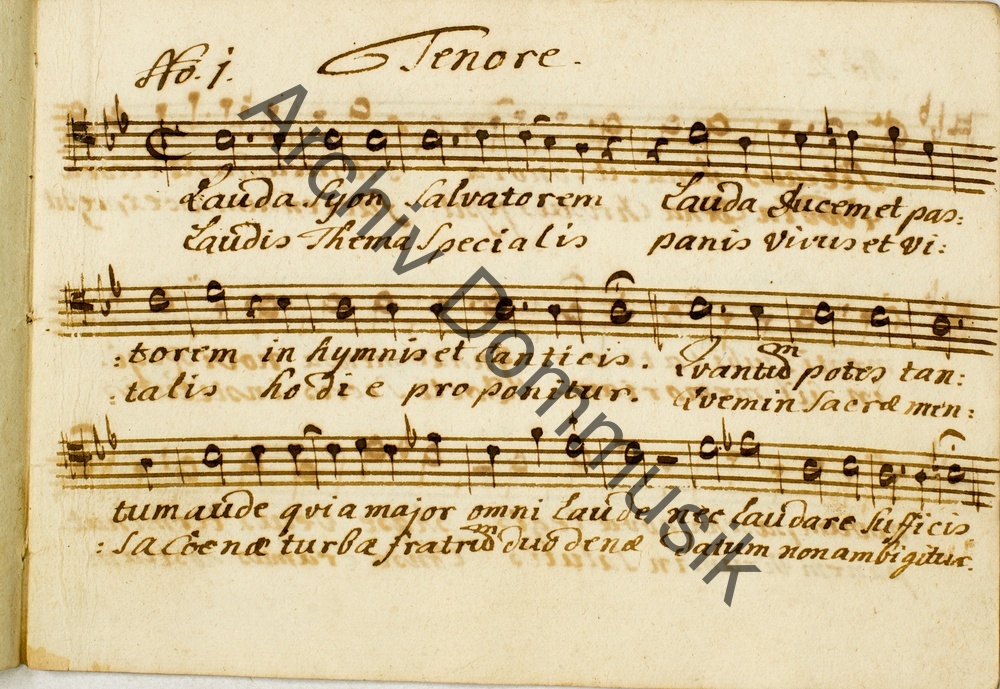 No. 1. Tenore.
Lauda Syon Salvatorem Lauda Ducem et pas:
Laudis Thema Specialis panis vivus et vi:
:torem in hymnis et canticis. Qvantũm potes tan:
:talis hodie proponitur. Qvem in Sacræ men:
tum aude qvia major omni laude nec laudare Sufficis
:Sa Coenæ turbæ fratrũm duodenæ Datum non ambigitur.
Archiv Dommusik